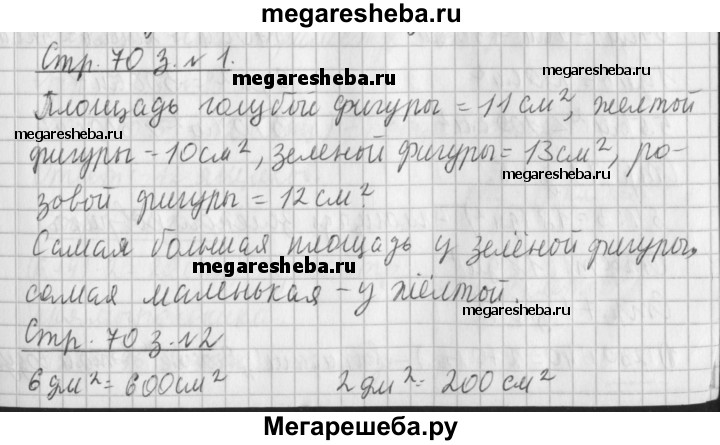 megaresheba.ru
Стр. 70 з. № 1.
megaresheba.ru
megaresheba.ru
Площадь голубый фигуры = 11 см², желтой
megaresheba.ru
фигуры - 10 см², зеленой фигуры = 13 см², ро-
megaresheba.ru
зовой фигуры = 12 см²
Самая большая площадь у зелёной фигуры,
megaresheba.ru
самая маленькая - у жёлтой.
megaresheba.ru
Стр. 70 з. №2
6 дм² = 600 см² 2 дм² = 200 см²
Мегарешеба.ру